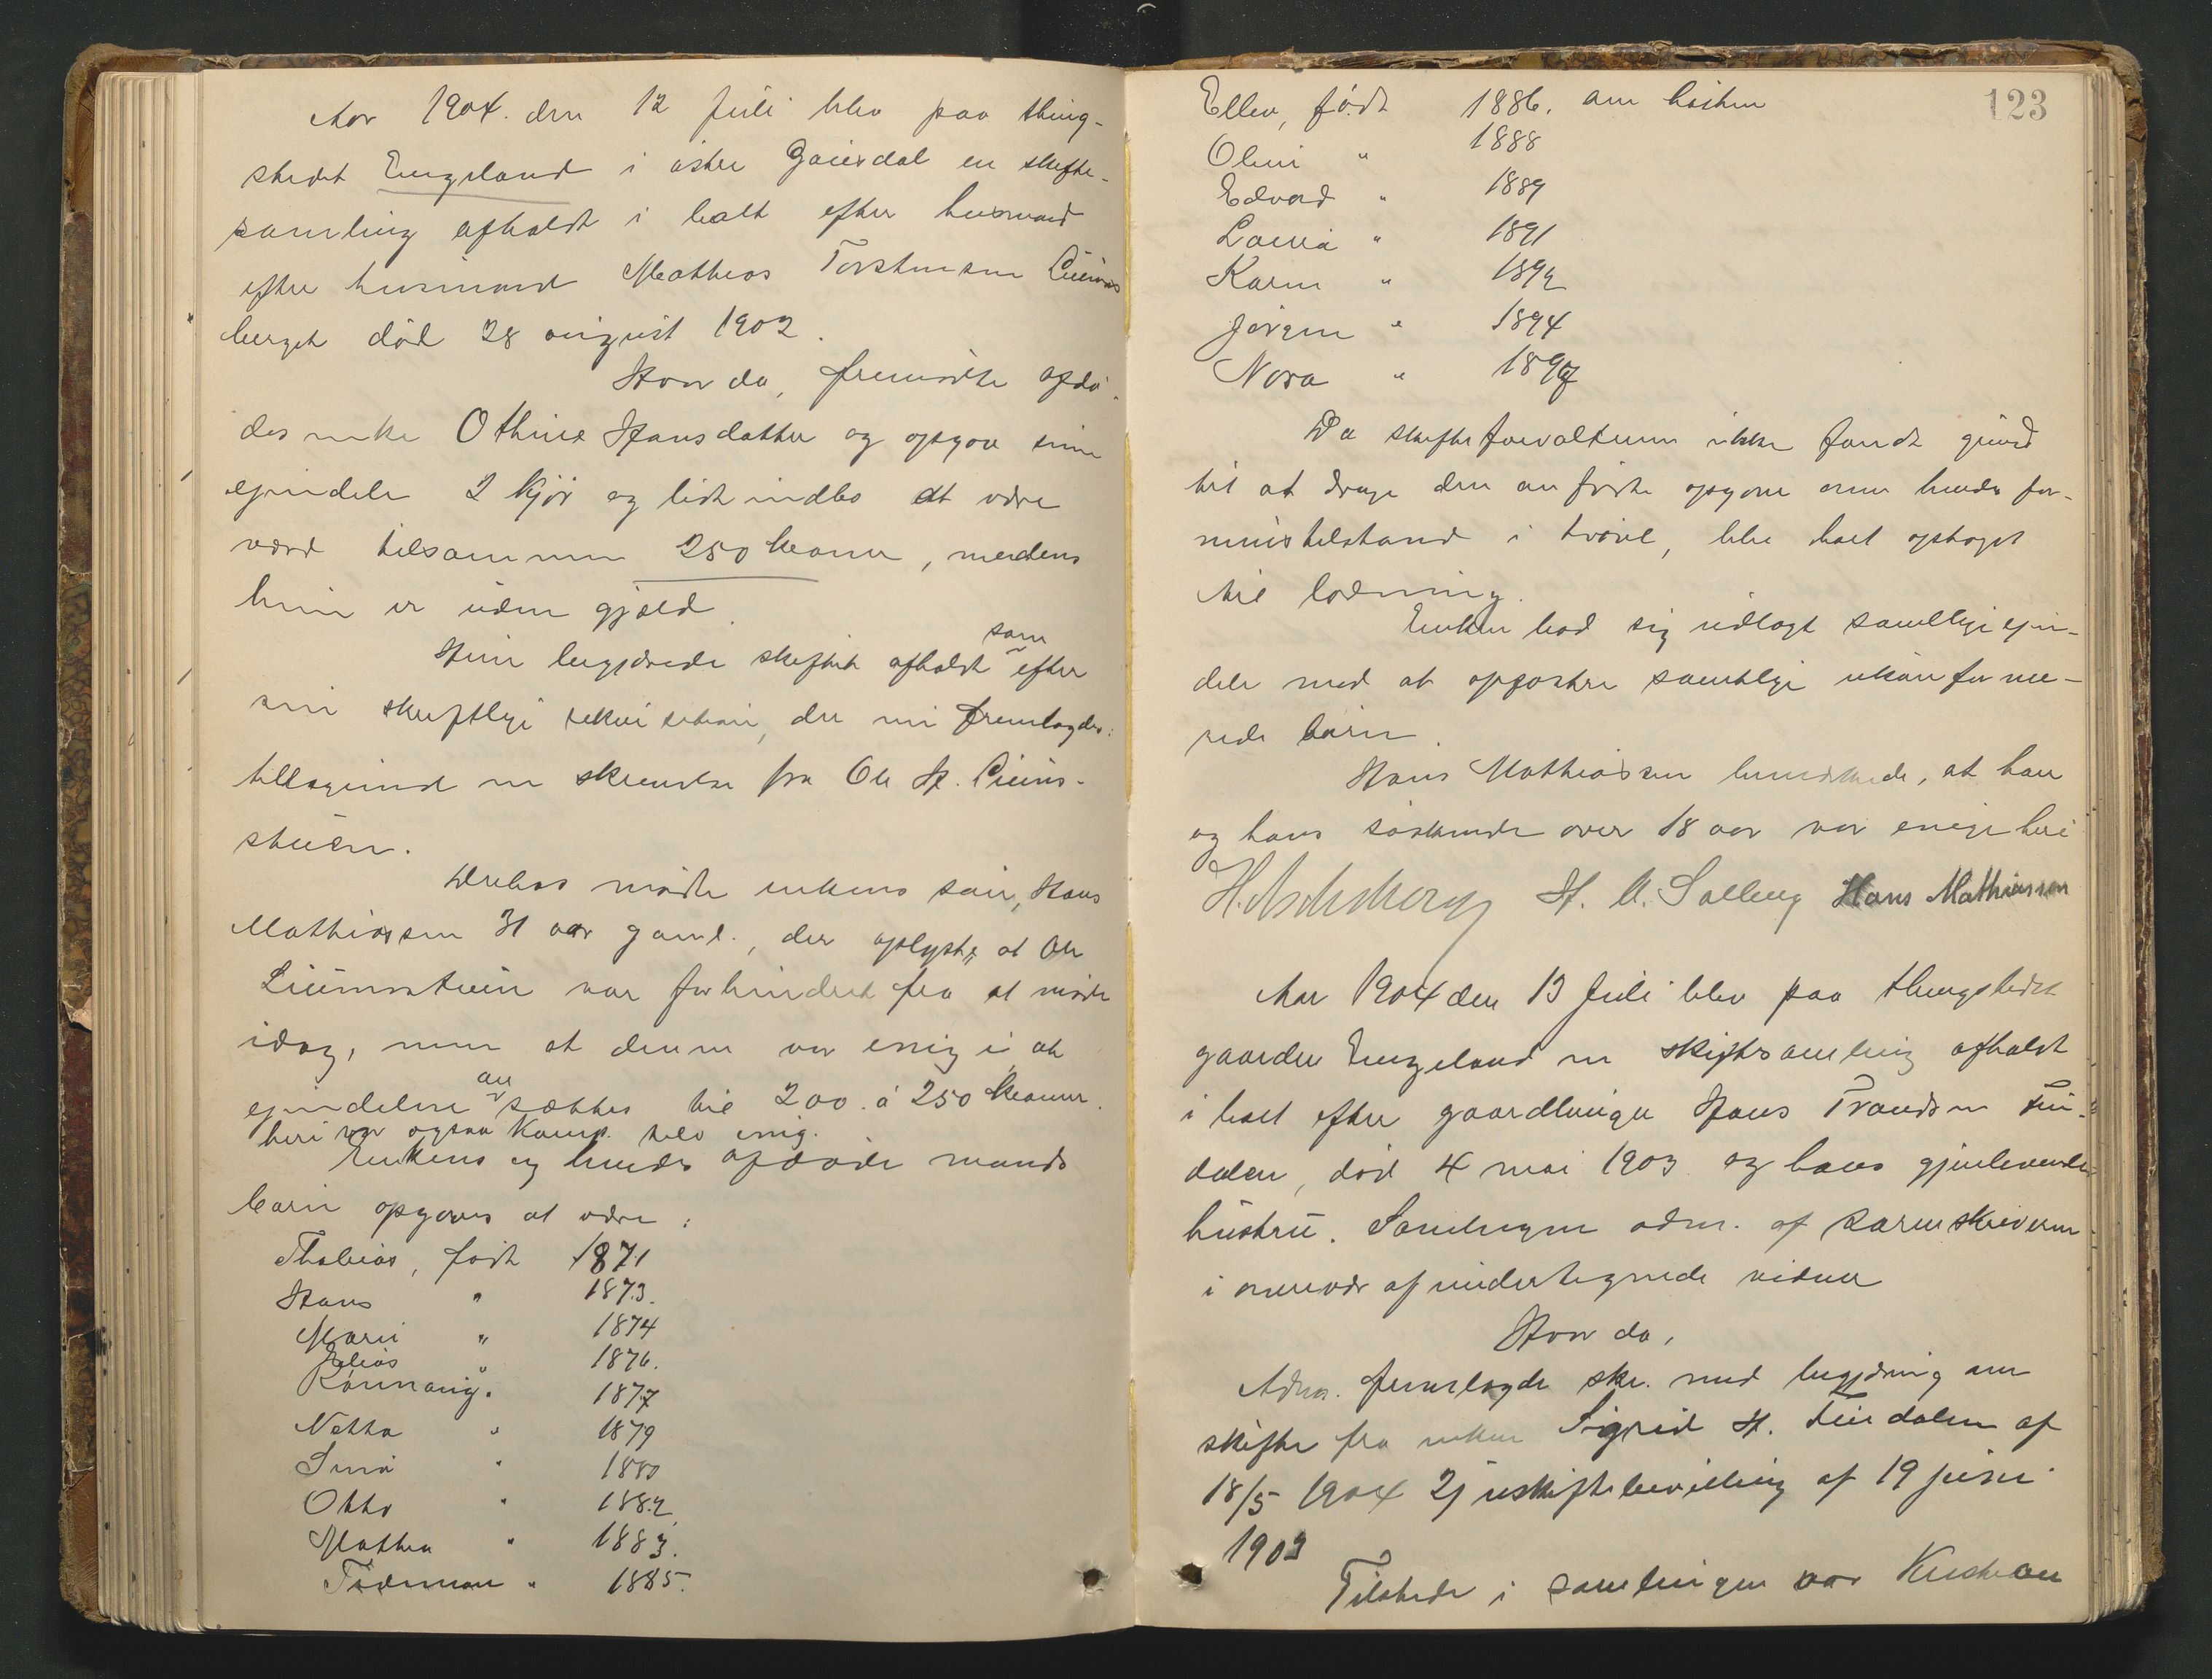 Aar 1904. den 12 Juli blev paa thing-
stedet Engeland i østre Gausdal en skifte-
samling afholdt i boet efter husmand
efter husmand Mathias Torstensen
berget død 28 august 1902.
Hvor da, fremødte afdø-
des enke Othine Hansdatter og opgav sine
eiendele 2 kjør og lidt indbo at være
værd tilsammen 250 kroner, medens
hun er uden gjæld.
Hun begjærede skiftet afholdt som efter
sin skriftlige rekvisition, der nu fremlagdes:
tillagemed en skrivelse fra Ole H.
stuen.
Derhos mødte enkens søn, Hans
Mathiassen 31 aar gaml., der oplyste, at Ole
var forhindret fra at møde
idag, men at denne var enig i at
eiendelene ansættes til 200 à 250 kroner.
heri var ogsaa Komp. selv enig.
Enkens og hendes afdøde mands
børn opgaves at være:
Thobias, født 1871
Hans " 1873.
Mari " 1874
Elias " 1876.
Rønnaug. 1877
Netta " 1879
" 1880
Otto " 1882
Mathea " 1883.
" 1885.
123
Ellen, født 1886. am høsten
Oluf " 1888
Edvard " 1889
Laura " 1891
Karen " 1892
Jørgen " 1894
Nora " 1897
Da skifteforvalteren ikke fandt grund
til at drage den anførte opgave over hendes for-
muestilstand i tvivl, blev boet optaget
til lodning.
Enken bad sig udlagt samtlige eien-
dele mod at opfostre samtlige ukonfirme-
rede børn.
Hans Mathiassen bemærkede, at han
og hans søskende over 18 aar var enige heri
H. A. Salberg Hans Mathiassen
Aar 1904 den 13 Juli blev paa thingstedet
gaarden Engeland en skiftesamling afholdt
i boet efter gaardbruger Hans Trondsen
dalen, død 4 mai 1903 og hans gjenlevende
hustru. Samlingen adm. af sorenskriveren
i overvær af undertegnede vidner
Hvor da,
Adm. fremlagde skr. med begjæring om
skifte fra enken Sigrid H. af
18/5 1904 2) uskiftebevilling af 19 juni
1903
Tilstede i samlingen var Kristian